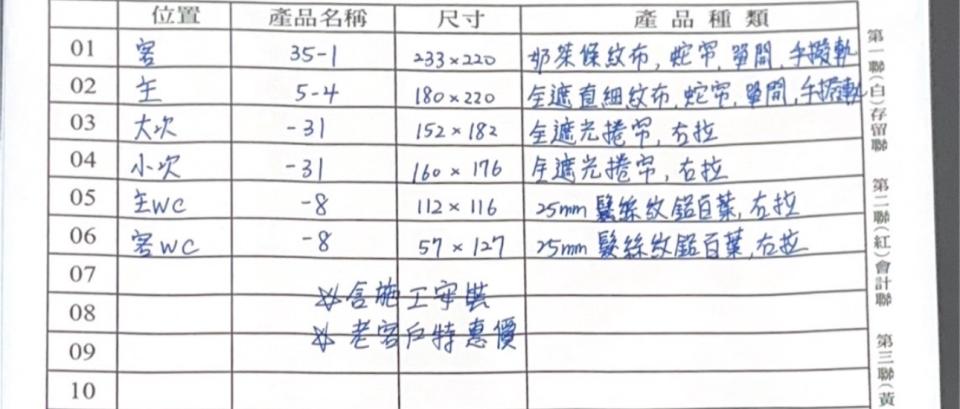 位置 產品名稱 尺寸 產品種類
01 客 35-1 233×220 奶茶條紋布, 蛇帘, 單開, 手撥軌
02 主 5-4 180×220 全遮直細紋布, 蛇帘, 單開, 手撥軌
03 大次 -31 152×182 全遮光捲帘, 右拉
04 小次 -31 160×176 全遮光捲帘, 右拉
05 主WC -8 112×116 25mm 髮絲紋鋁百葉, 右拉
06 客WC -8 57×127 25mm 髮絲紋鋁百葉, 右拉
07
※含施工安裝
08
※老客戶特惠價
09
10
第一聯(白)存留聯 第二聯(紅)會計聯 第三聯(黃